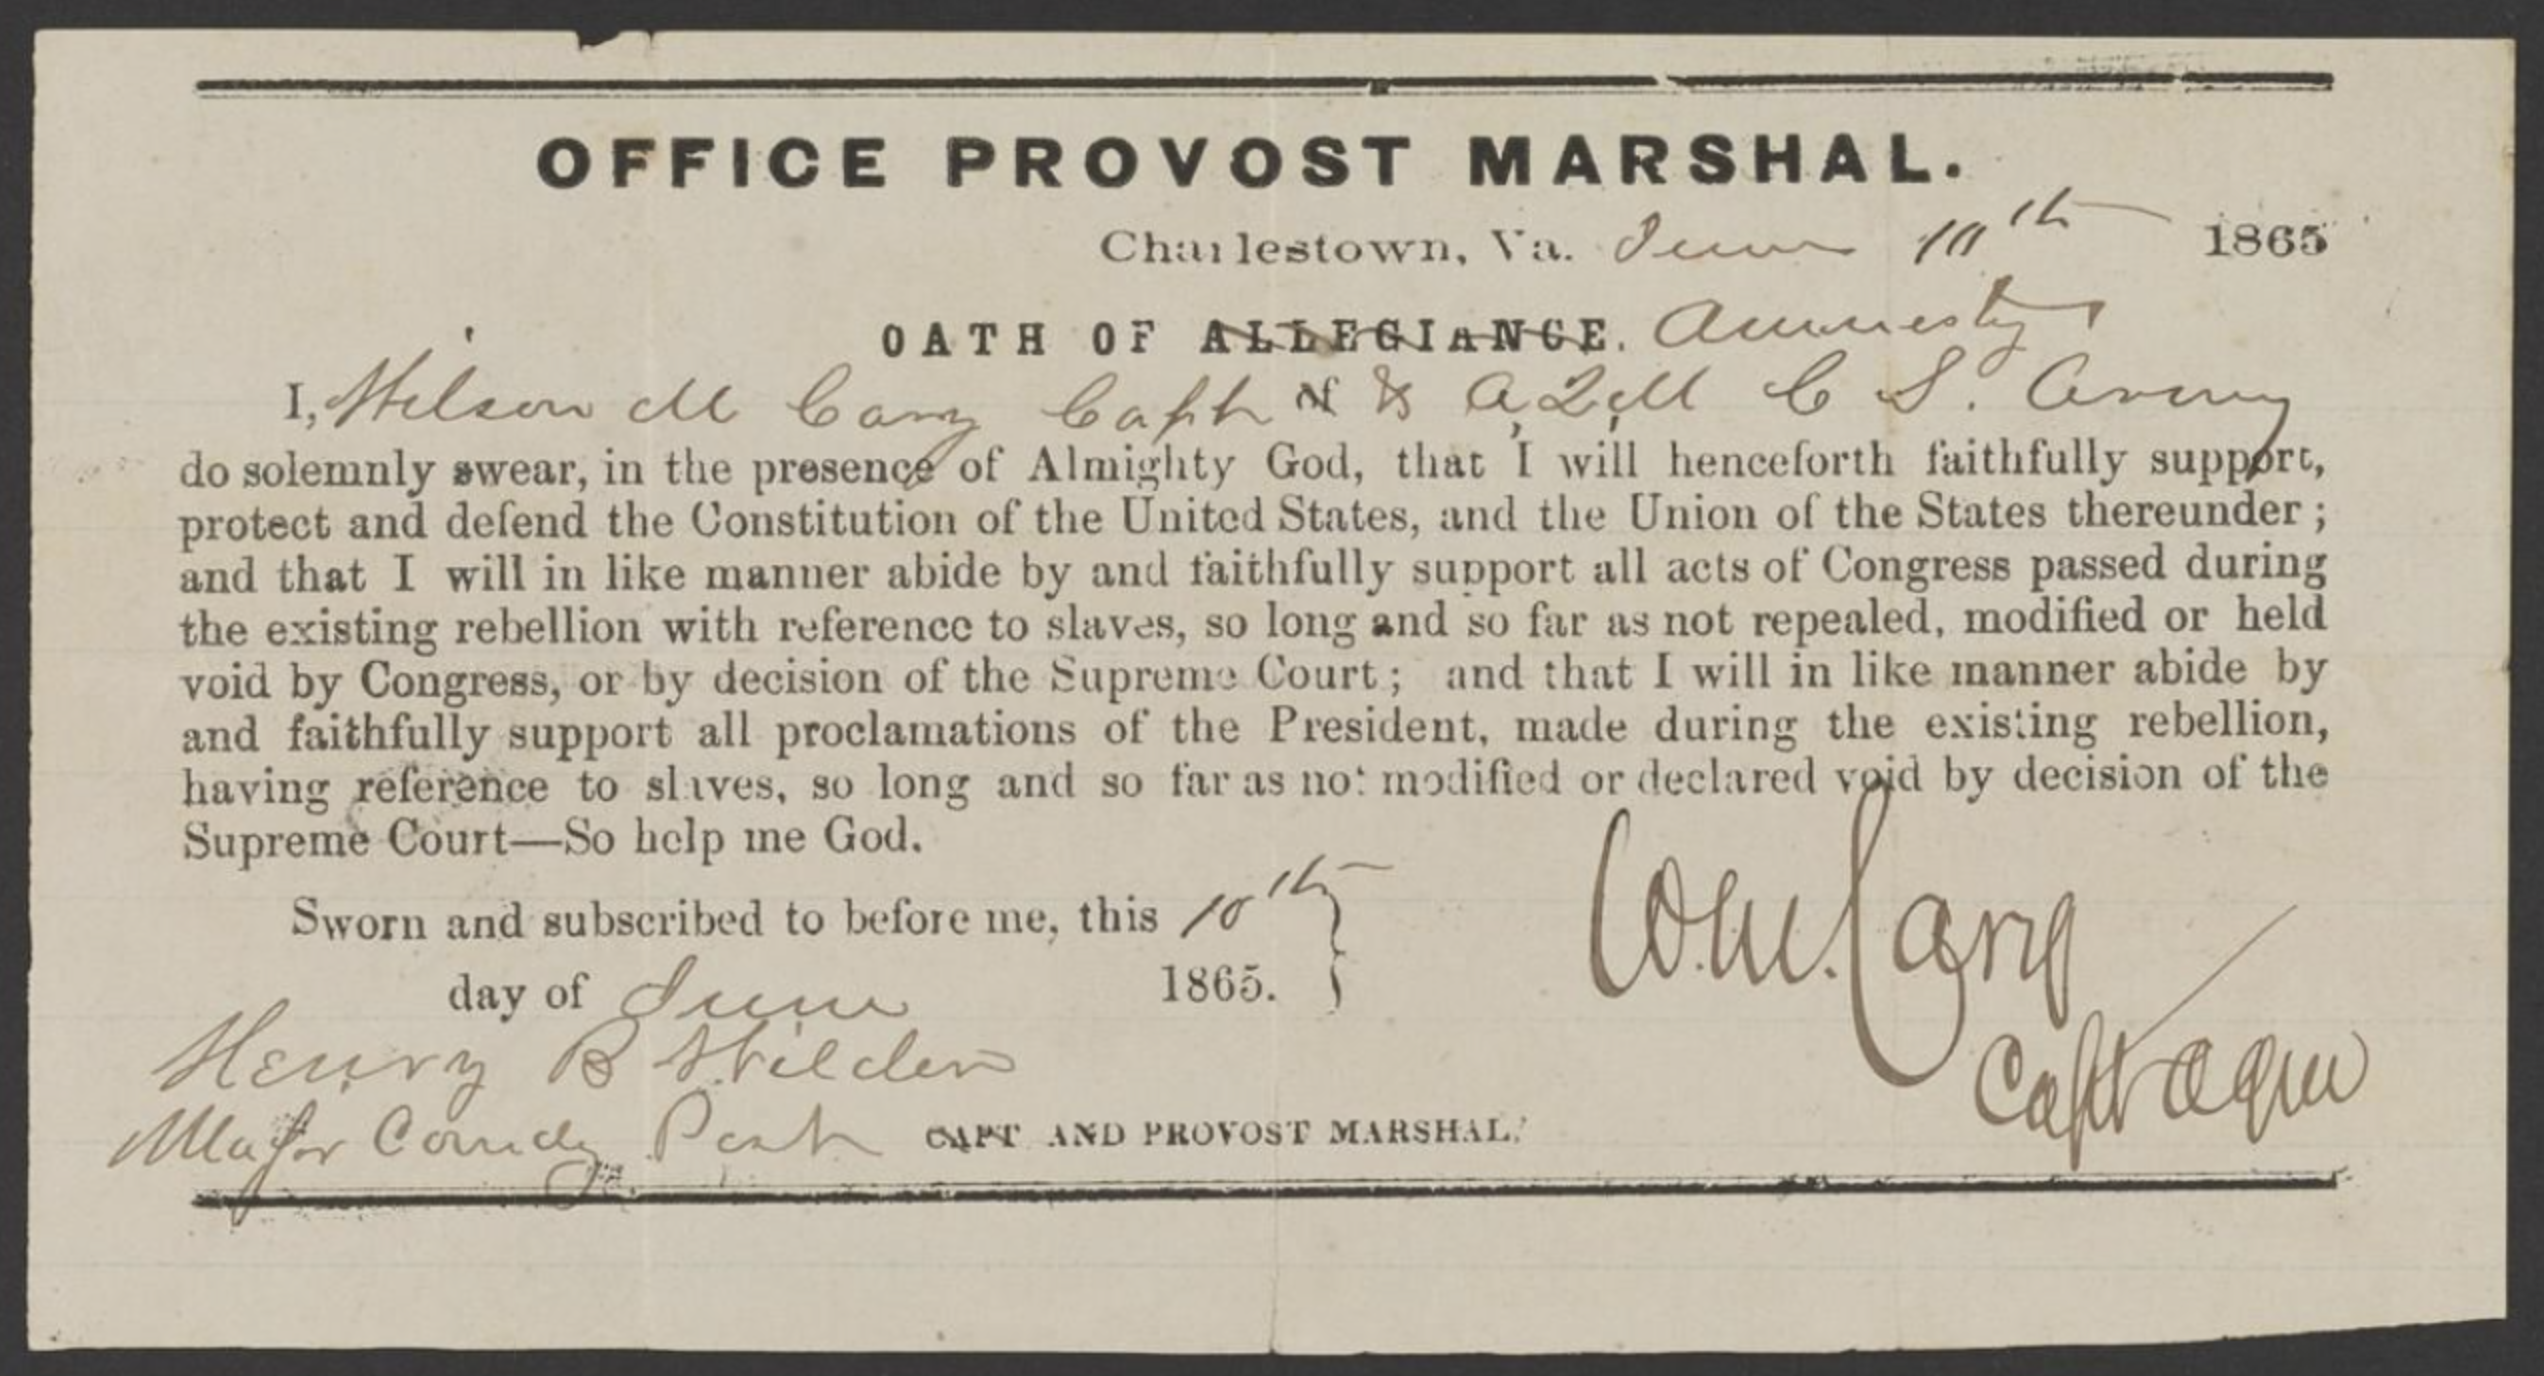 OFFICE PROVOST MARSHAL.
Charlestown, Va. June 10th 1865
OATH OF ALLEGIANCE. Amnesty
I, Wilson M Cary Capt of & A.Q.M C S. Army
do solemnly swear, in the presence of Almighty God, that I will henceforth faithfully support,
protect and defend the Constitution of the United States, and the Union of the States thereunder ;
and that I will in like manner abide by and faithfully support all acts of Congress passed during
the existing rebellion with reference to slaves, so long and so far as not repealed, modified or held
void by Congress, or by decision of the Supreme Court ; and that I will in like manner abide by
and faithfully support all proclamations of the President, made during the existing rebellion,
having reference to slaves, so long and so far as not modified or declared void by decision of the
Supreme Court—So help me God.
Sworn and subscribed to before me, this 10th
day of June 1865.
W.M. Cary
Capt & AQM
Henry B Wilder
Major Comdg Post CAPT AND PROVOST MARSHAL.